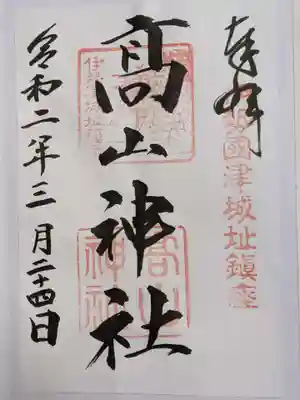 奉拝
勢國津城址鎮座
髙山神社
高山神社
令和二年三月二十四日